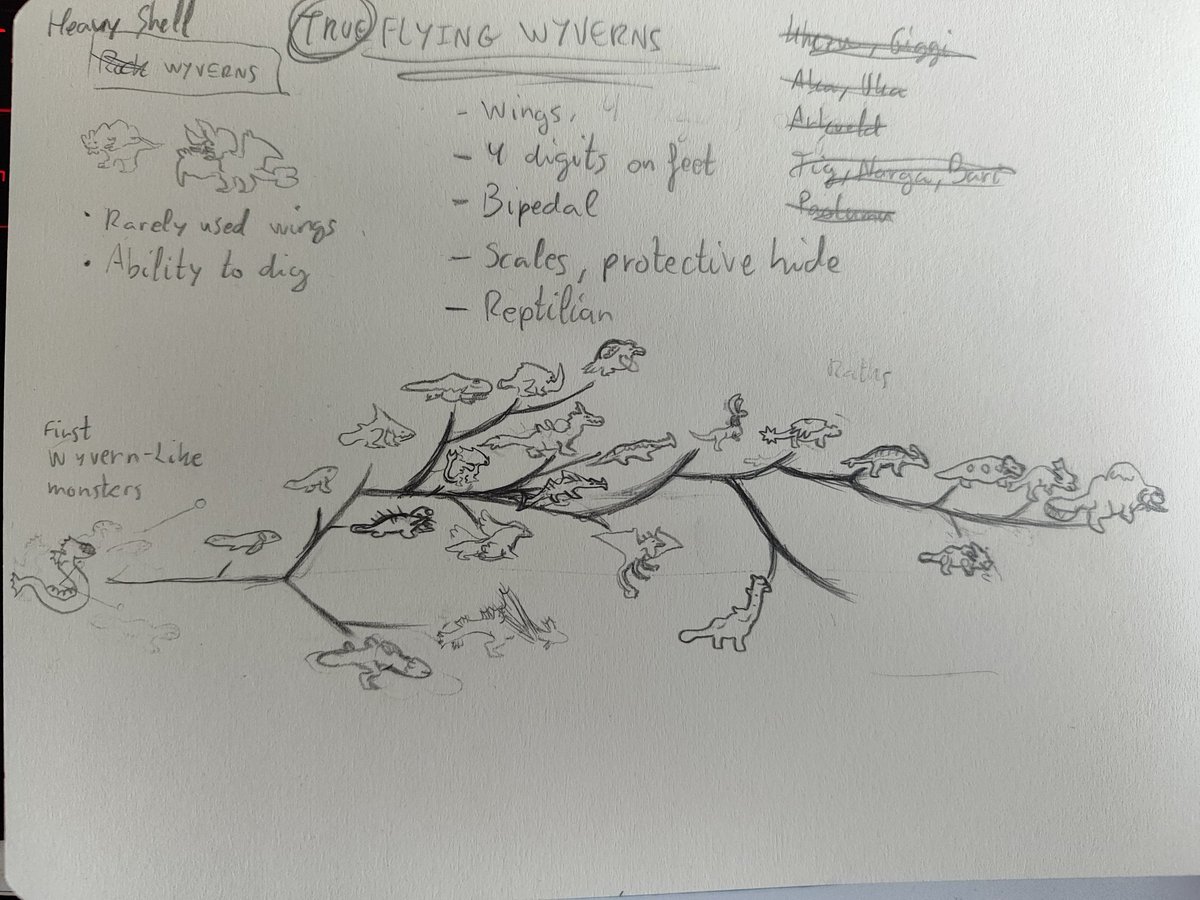 Heavy Shell
Rock WYVERNS
• Rarely used wings
• Ability to dig
TRUE FLYING WYVERNS
- Wings,
- 4 digits on feet
- Bipedal
- Scales, protective hide
- Reptilian
Giggi
Aka, Uka
Tig, Narga, Bari
Paolumu
Raths
First
Wyvern-like
monsters